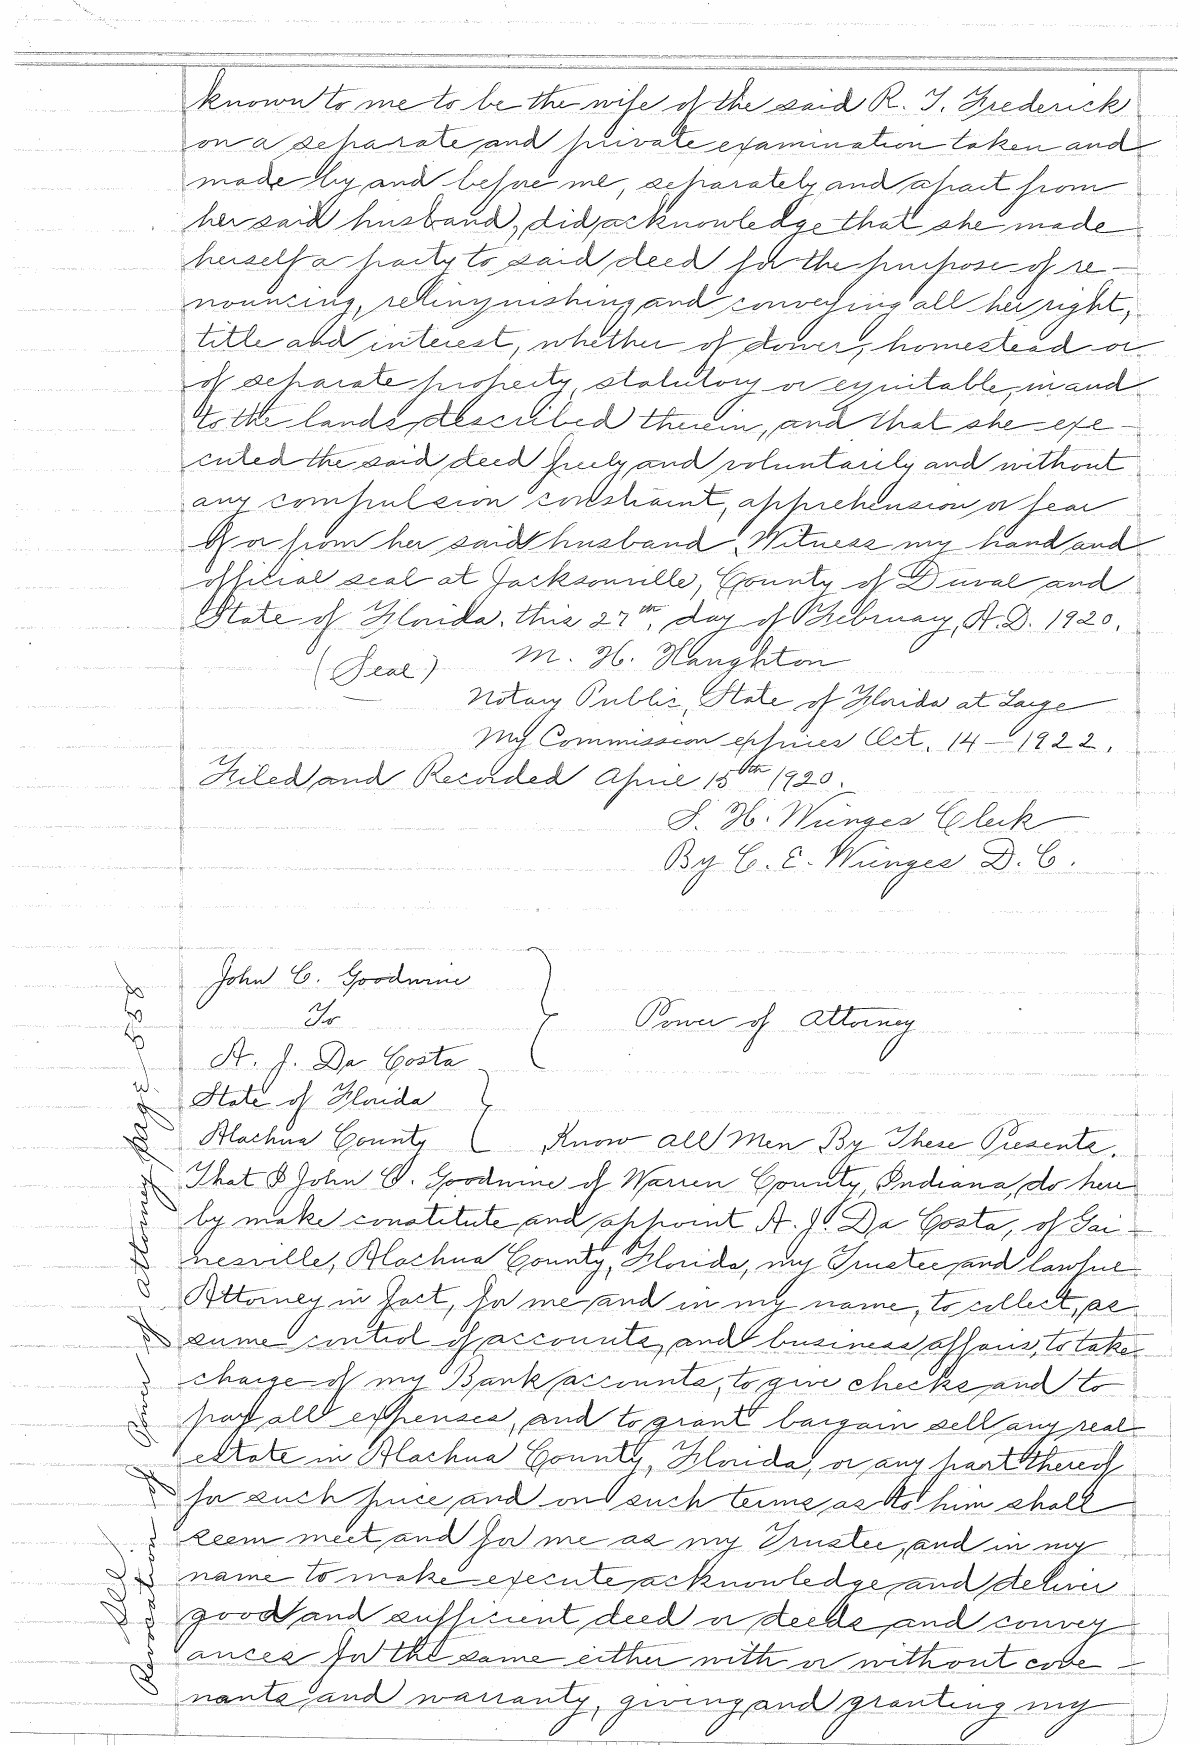 known to me to be the wife of the said R. T. Frederick
on a separate and private examination taken and
made by and before me, separately and apart from
her said husband, did acknowledge that she made
herself a party to said deed for the purpose of re-
nouncing, relinquishing and conveying all her right,
title and interest, whether of dower, homestead or
of separate property, statutory or equitable, in and
to the lands described therein, and that she exe-
cuted the said deed freely and voluntarily and without
any compulsion constraint, apprehension or fear
of or from her said husband. Witness my hand and
official seal at Jacksonville, County of Duval and
State of Florida. this 27th. day of February, A.D. 1920.
(Seal) M. H. Haughton
Notary Public, State of Florida at Large
My Commission expires Oct. 14 - 1922.
Filed and Recorded April 15th 1920.
S. H. Wienges Clerk
By C. E. Wienges D. C.
John C. Goodwine
To
A. J. Da Costa
Power of Attorney
State of Florida
Alachua County Know All Men By These Presents.
That I John C. Goodwine of Warren County, Indiana, do here
by make constitute and appoint A. J. Da Costa, of Gai-
nesville, Alachua County, Florida, my Trustee and lawful
Attorney in fact, for me and in my name, to collect, as
sume control of accounts, and business affairs, to take
charge of my Bank accounts, to give checks and to
pay all expenses, and to grant bargain sell any real
estate in Alachua County, Florida, or any part thereof
for such price and on such terms as to him shall
seem meet and for me as my Trustee, and in my
name to make execute acknowledge and deliver
good and sufficient deed or deeds and convey
ances for the same either with or without cove-
nants and warranty, giving and granting my
See
Revocation of Power of attorney page 558